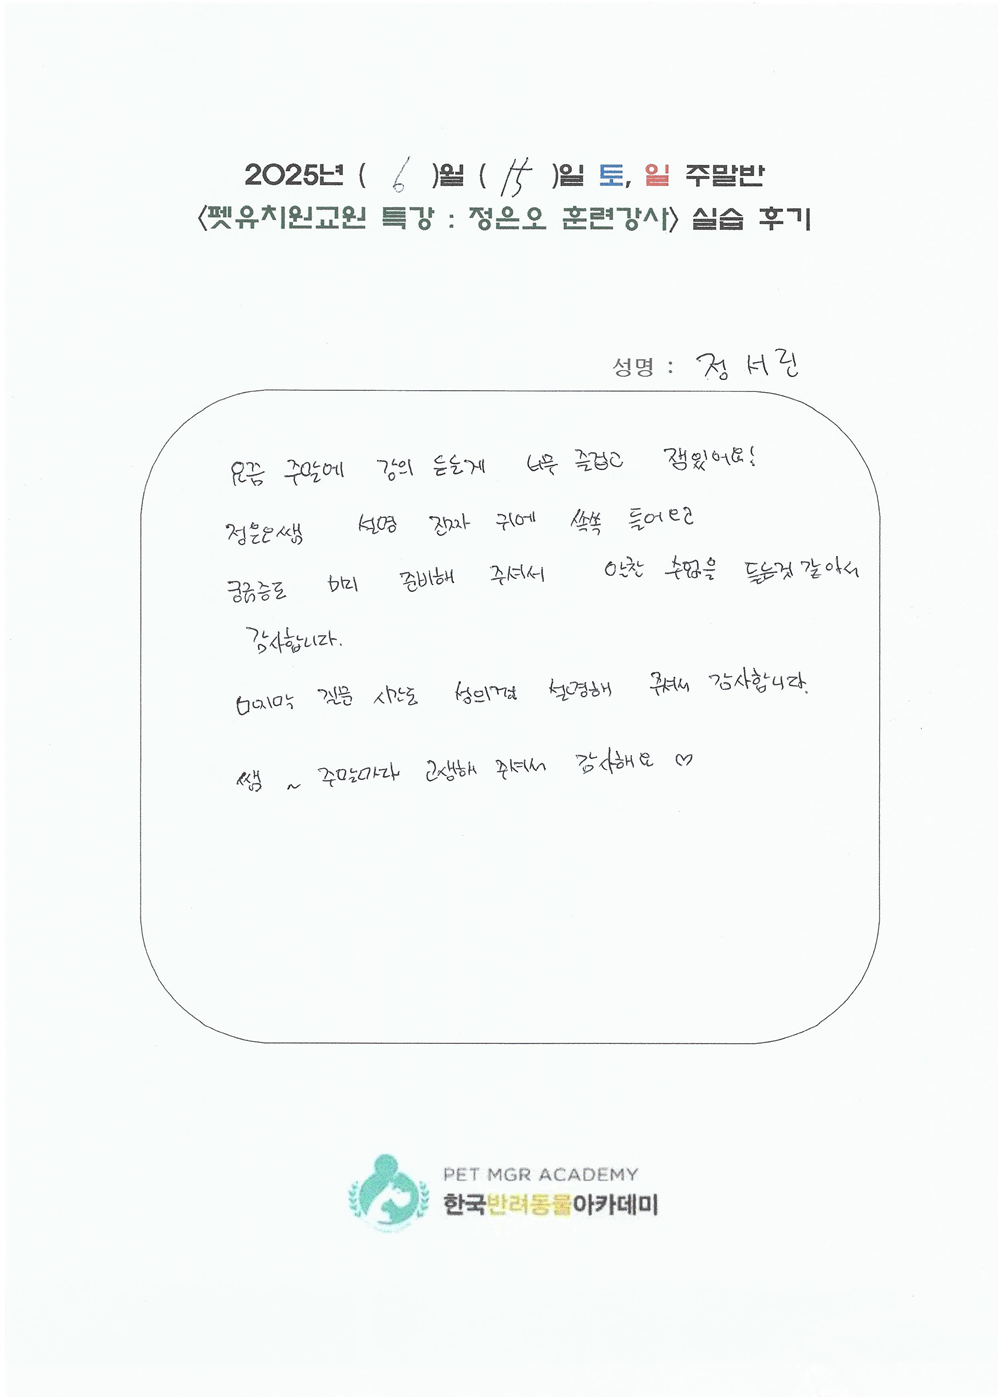 2025년 ( 6 )월 ( 15 )일 토, 일 주말반
<펫유치원교원 특강 : 정은오 훈련강사> 실습 후기
성명 : 정서린
요즘 주말에 강의 듣는게 너무 즐겁고 잼있어요!
정은오쌤 설명 진짜 귀에 쏙쏙 들어오고
궁금증도 미리 준비해 주셔서 알찬 수업을 듣는것 같아서
감사합니다.
마지막 질문 시간도 성의껏 설명해 주셔서 감사합니다.
쌤 ~ 주말마다 고생해 주셔서 감사해요 ♡
PET MGR ACADEMY
한국반려동물아카데미